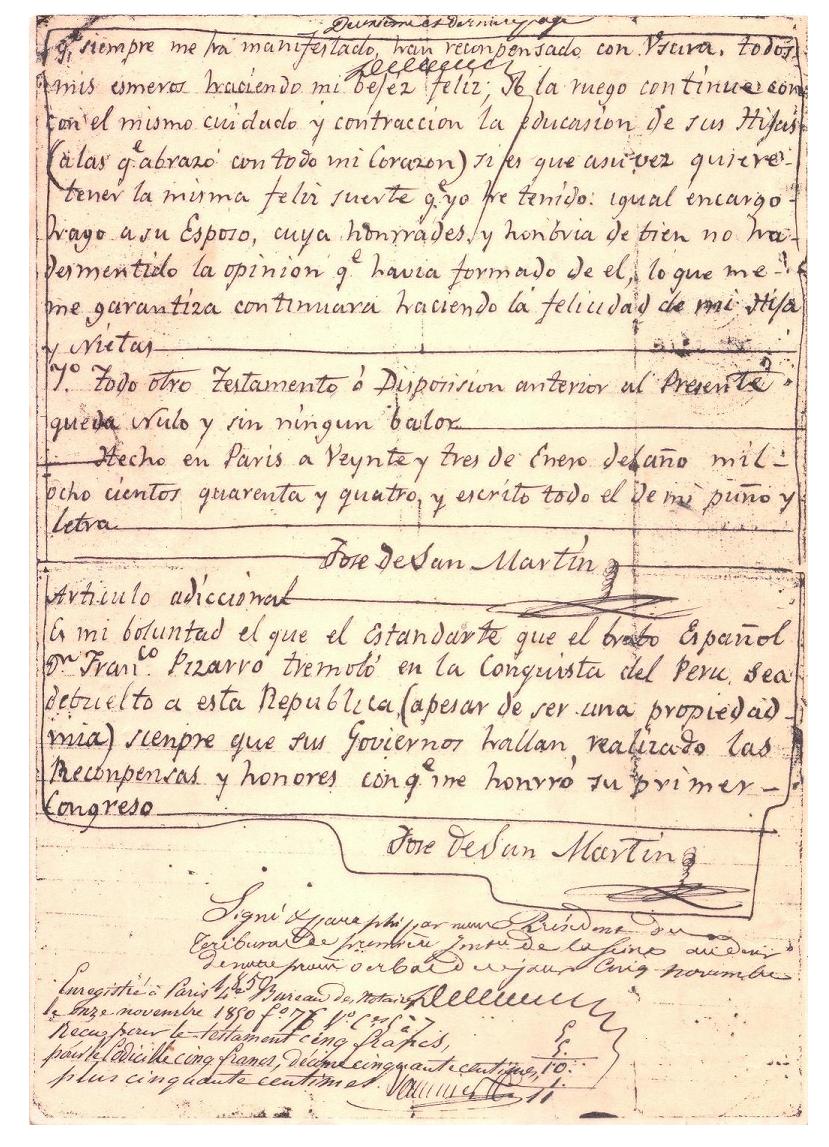 Deuxieme et derniere page
qe. siempre me ha manifestado, han reconpensado con Vsura, todos
mis esmeros haciendo mi befez feliz; Yo la ruego continue con
con el mismo cuidado y contraccion la educasion de sus Hijas
(a las qe. abrazo con todo mi Corazon) si es que asu vez quiere
tener la misma feliz suerte qe. yo he tenido: igual encargo
hago a su Esposo, cuya honrrades, y honbria de bien no ha
desmentido la opinion qe. havia formado de el, lo que me
me garantiza continuara haciendo la felicidad de mi Hija
y Nietas
7º. Todo otro Testamento ó Disposision anterior al Presente
queda Nulo y sin ningun balor
Hecho en Paris a Veynte y tres de Enero del año mil
ocho cientos quarenta y quatro, y escrito todo el de mi puño y
letra
Jose de San Martin
Articulo adiccional
Es mi boluntad el que el Estandarte que el brabo Español
Dn. Franco. Pizarro tremoló en la Conquista del Peru, sea
debuelto a esta Republica, (apesar de ser una propiedad
mia) sienpre que sus Goviernos hallan realizado las
Reconpensas y honores con qe. me honrró su primer
Congreso
Jose de San Martin
Signé & paraphé par nous Président du
Tribunal de première Instce de la Seine au desir
de notre procès verbal de ce jour Cinq novembre
Enregistré à Paris Bureau des Notaires
le onze novembre 1850 fo 76 Vo
Recu pour le testament cinq francs,
5.
pour le Codicille cinq francs, décime cinquante centimes,
5.
10.
plus cinquante centimes
11.